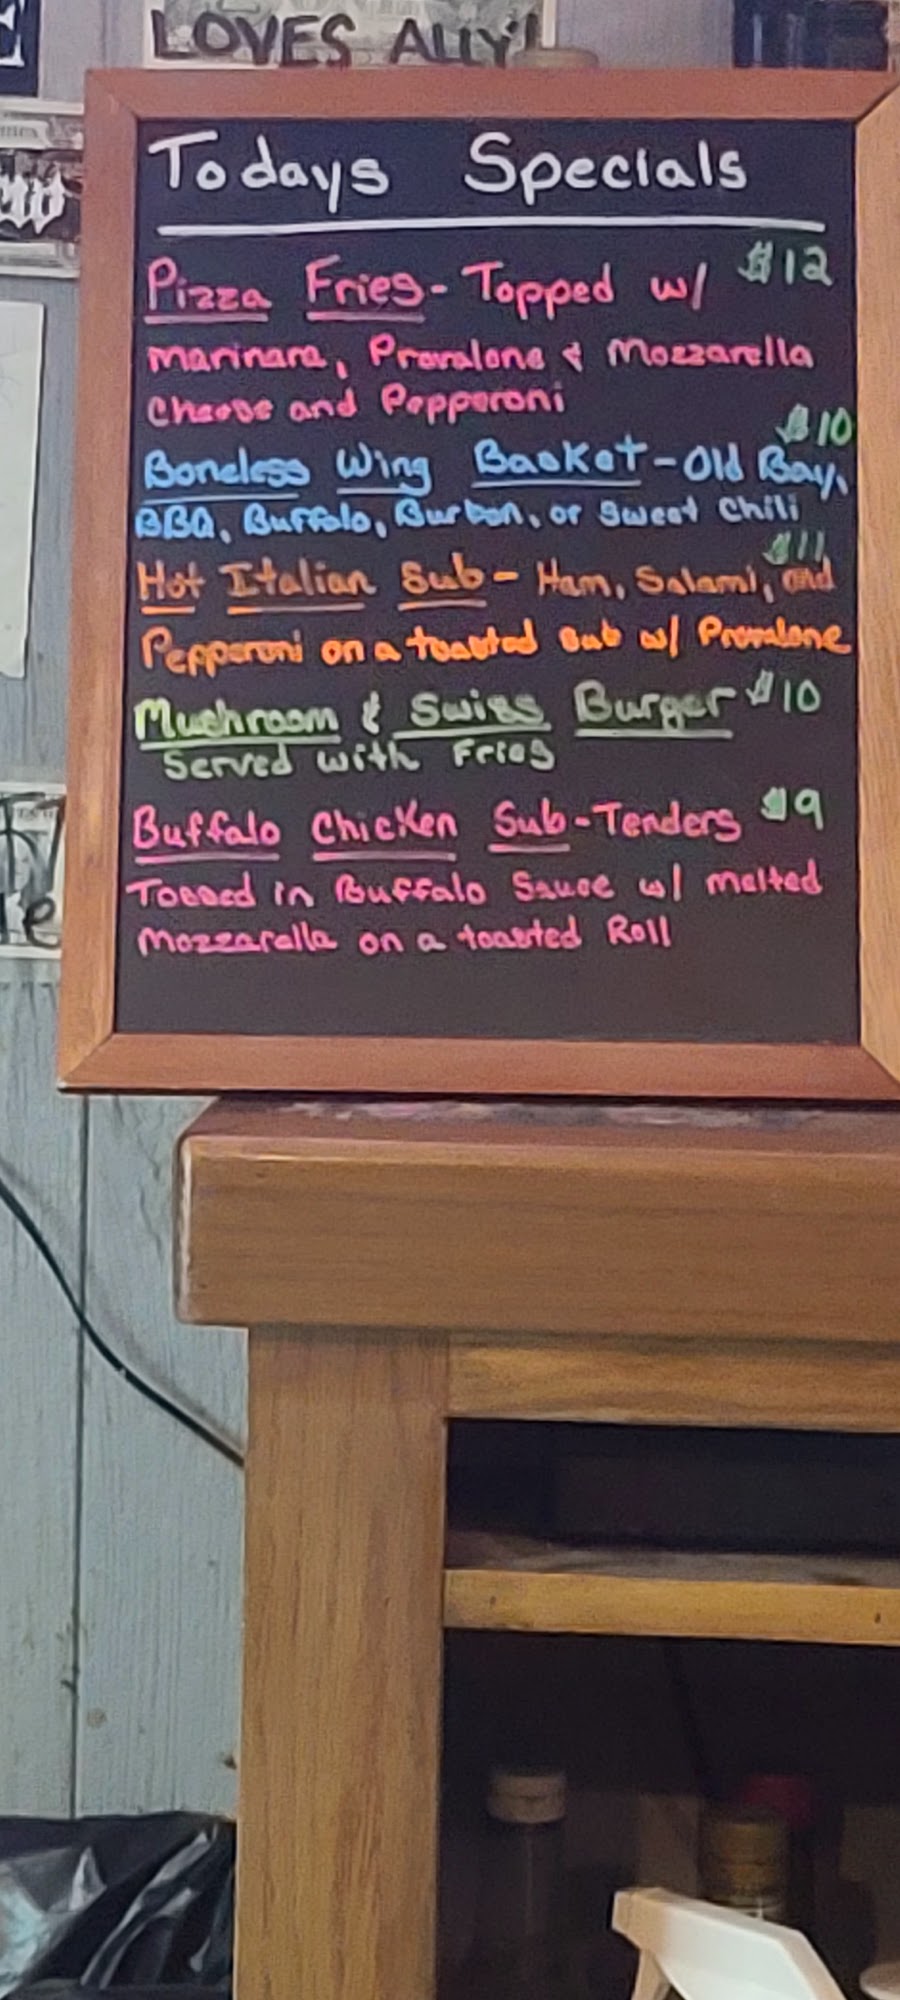 LOVES ALLY!
Todays Specials
Pizza Fries - Topped w/ $12
marinara, Provalone & Mozzarella
Cheese and Pepperoni
$10
Boneless Wing Basket - Old Bay,
BBQ, Buffalo, Burbon, or Sweet Chili
$11
Hot Italian Sub - Ham, Salami, and
Pepperoni on a toasted sub w/ Provalone
Mushroom & Swiss Burger $10
Served with Fries
Buffalo Chicken Sub - Tenders $9
Tossed in Buffalo Sauce w/ melted
Mozzarella on a toasted Roll